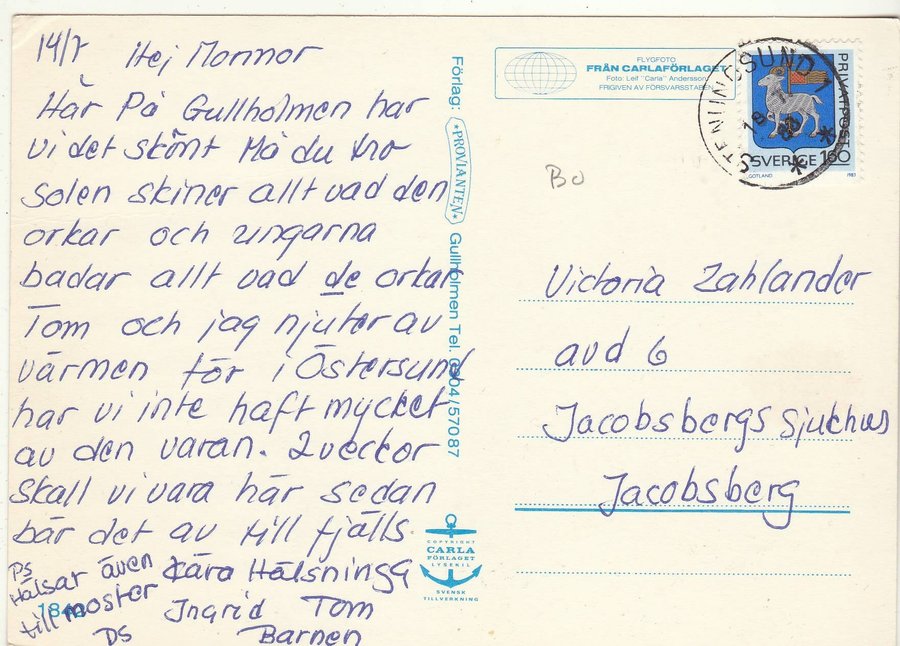 14/7 Hej Mormor
Här På Gullholmen har
vi det skönt Må du tro
Solen skiner allt vad den
orkar och ungarna
badar allt vad de orkar
Tom och jag njuter av
värmen för i Östersund
har vi inte haft mycket
av den varan. 2 veckor
skall vi vara här sedan
bär det av till fjälls.
Kära Hälsninga
Ingrid Tom
Barnen
Ps
Hälsar även
till moster
DS
184
Förlag: *PROVIANTEN* Gullholmen Tel. 0304/57087
FLYGFOTO
FRÅN CARLAFÖRLAGET
Foto: Leif "Carla" Andersson
FRIGIVEN AV FÖRSVARSSTABEN
STENUNGSUND 1
PRIVATPOST
SVERIGE 160
GOTLAND 1983
BO
Victoria Zahlander
avd 6
Jacobsbergs Sjukhus
Jacobsberg
COPYRIGHT
CARLA
FÖRLAGET
LYSEKIL
SVENSK
TILLVERKNING